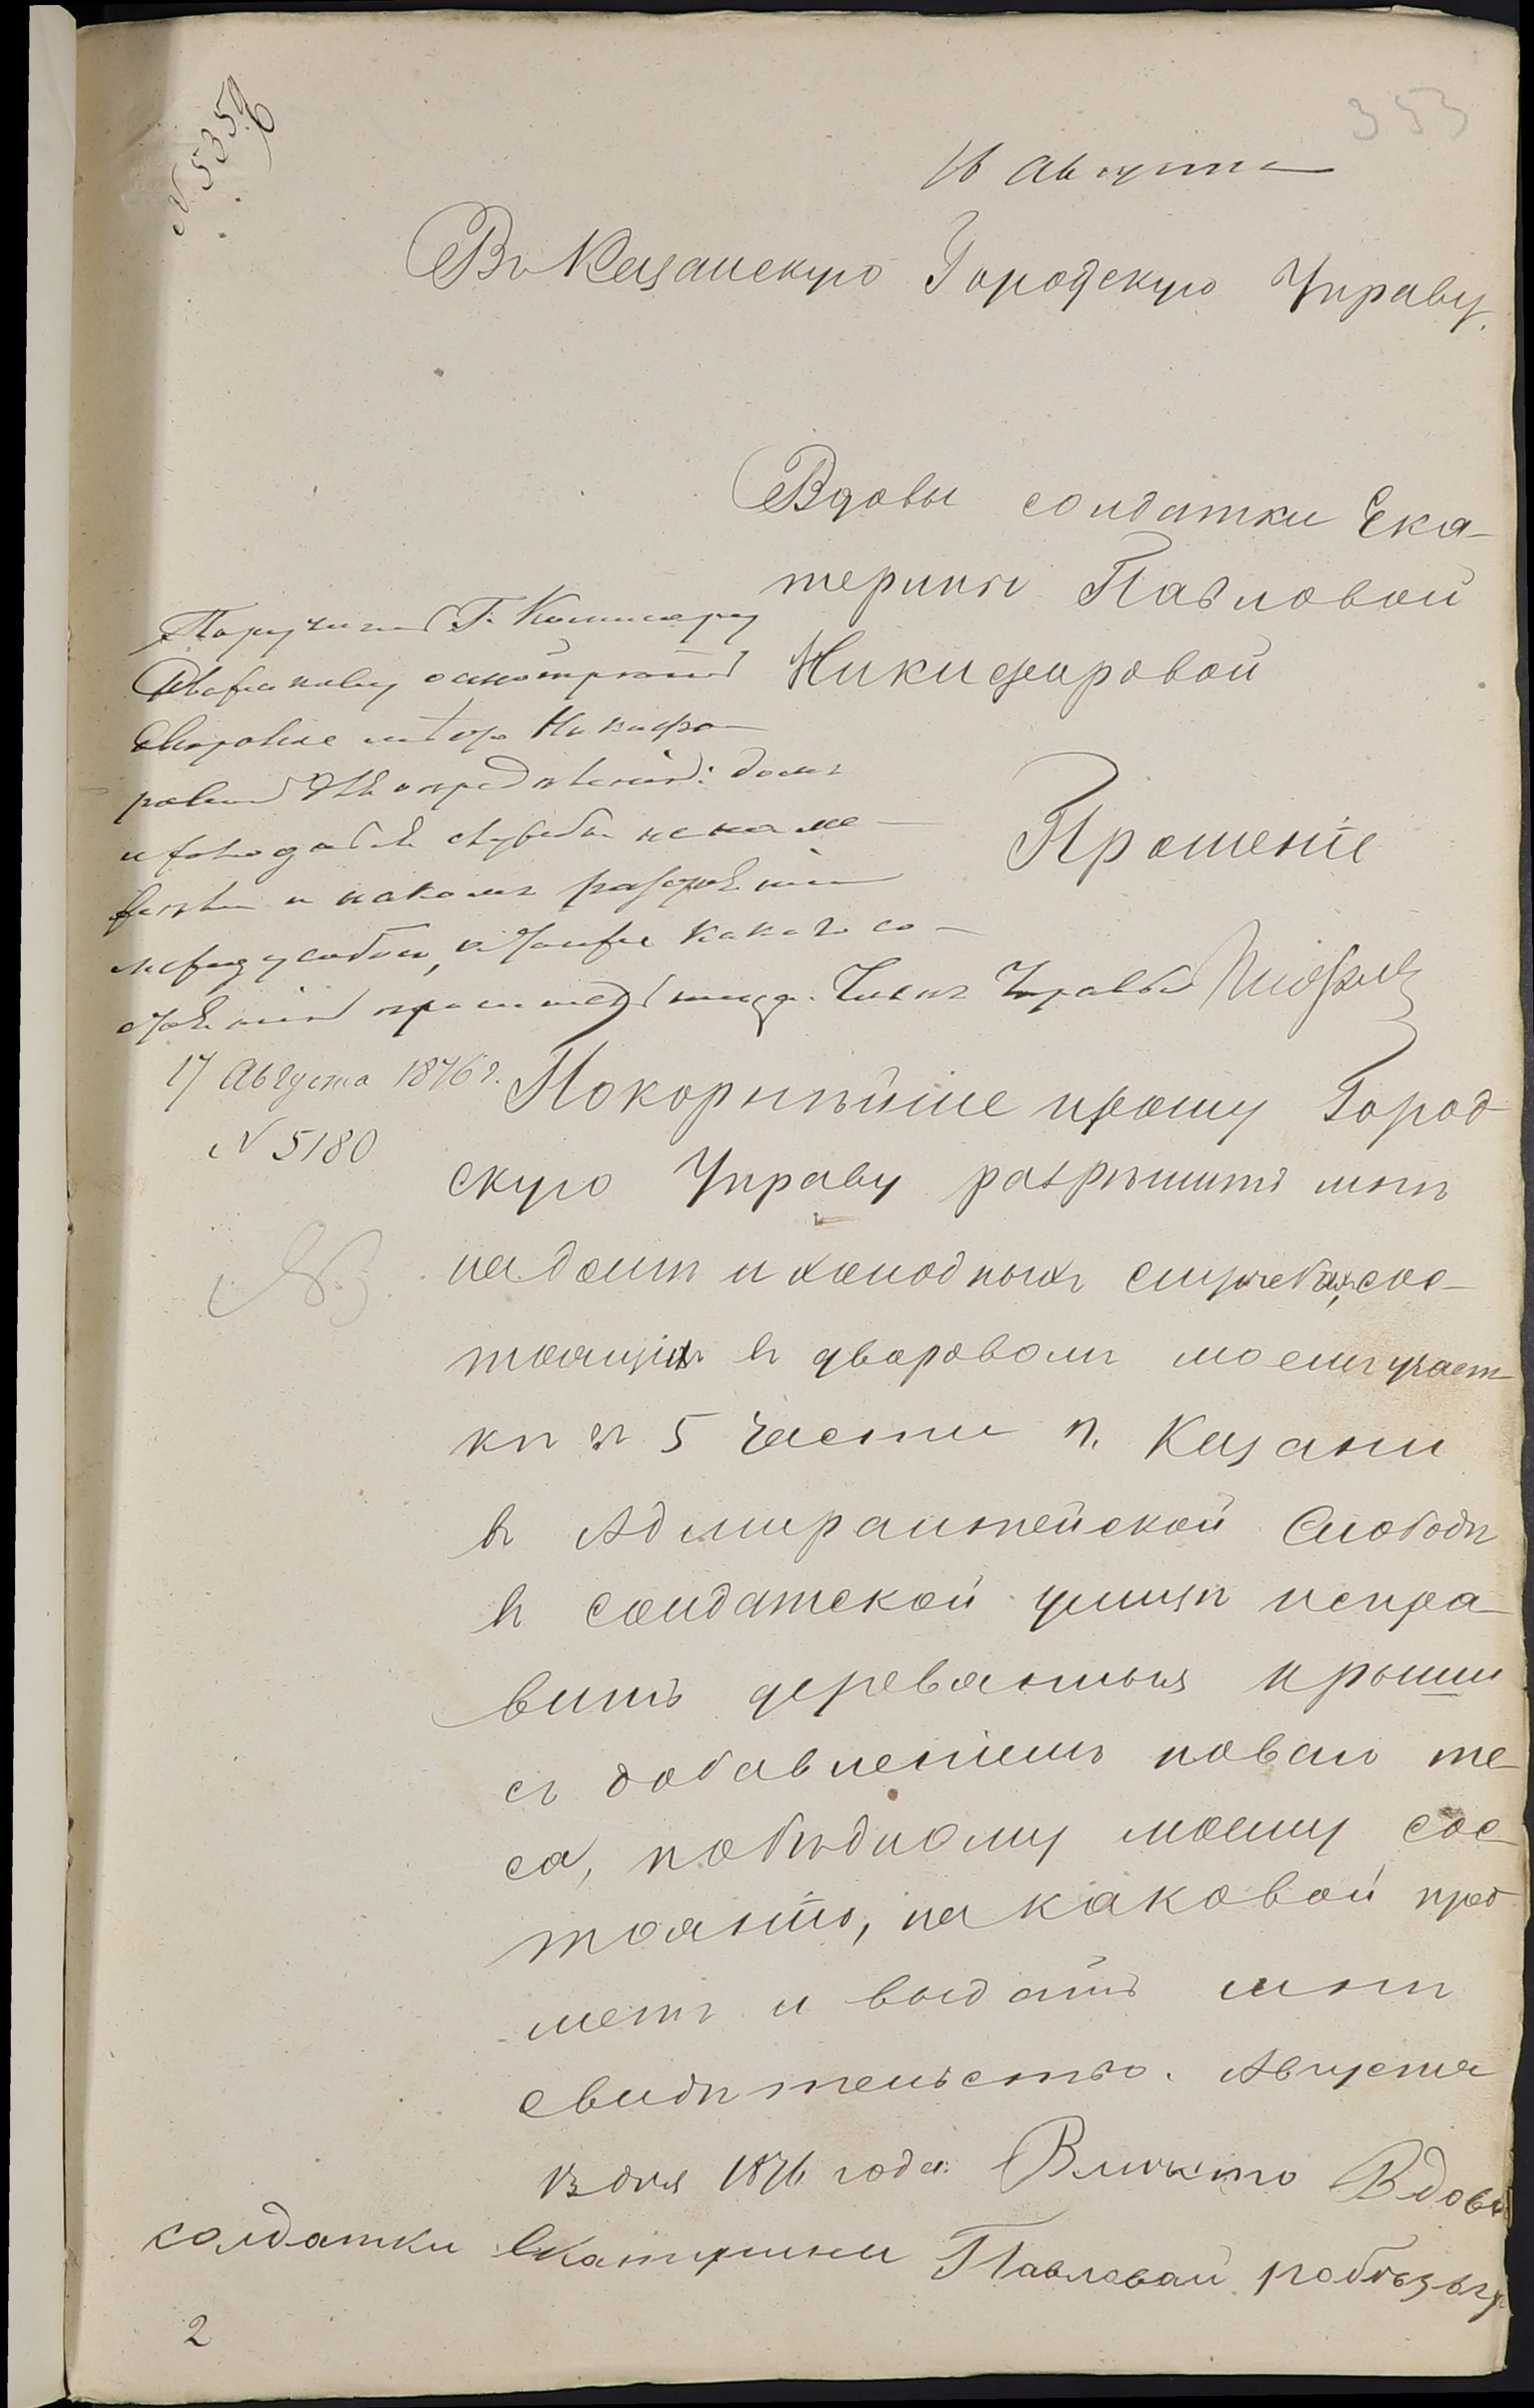 353
N 5359
16 Августа
Въ Казанскую Городскую Управу.
Вдовы солдатки Ека-
терины Павловой
Никифоровой
Прошеніе
Поручить Г. Комисару
осмотреть
дворовое место Никифо-
ровой для определенія: домъ
и холодныя службы
и въ какомъ разстояніи
между собою, какого со-
стоянія Членъ Управы
17 Августа 1876 г.
N 5180
Покорнѣйше прошу Город-
скую Управу разрѣшить мнѣ
на домѣ и холодныхъ службахъ, сос-
тоящихъ въ дворовомъ моемъ участ-
кѣ въ 5 части г. Казани
въ Адмиралтейской Слободѣ
въ Солдатской улицѣ испра-
вить деревянныя крыши
съ добавленіемъ новаго те-
са, по бѣдному моему сос-
тоянію, на каковой пред
метъ и выдать мнѣ
свидѣтельство. Августа
13 дня 1876 года. Вмѣсто Вдовы
солдатки Екатерины Павловой
2